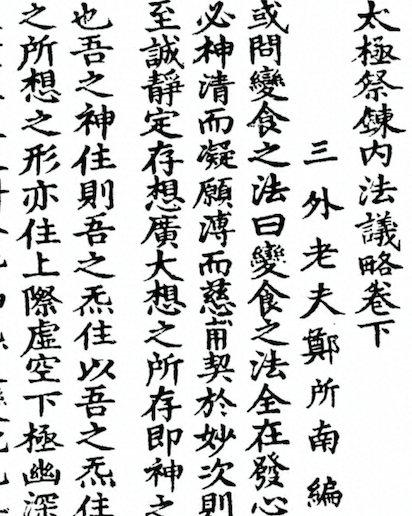 太極祭鍊内法議略卷下
三外老夫鄭所南編
或問變食之法曰變食之法全在發心
必神清而凝願溥而慈契於妙次則
至誠靜定存想廣大想之所存即神之
也吾之神住則吾之炁住以吾之炁住
之所想之形亦住上際虛空下極幽深